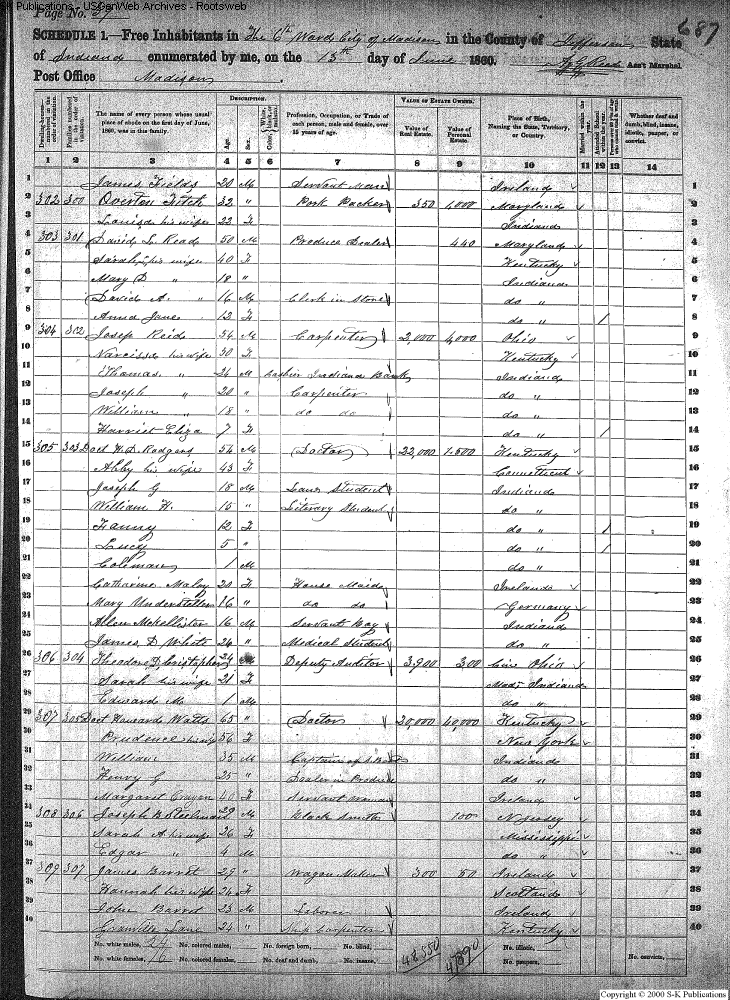 SK Publications - USGenWeb Archives - Rootsweb
Page No. 687
SCHEDULE 1.—Free Inhabitants in The 6th Ward City of Madison in the County of Jefferson State
of Indiana enumerated by me, on the 13th day of June 1860. Ass't Marshal.
Post Office Madison
Dwelling-houses—numbered in the order of visitation.
Families numbered in the order of visitation.
The name of every person whose usual place of abode on the first day of June, 1860, was in this family.
DESCRIPTION.
Age. Sex. Color,
Profession, Occupation, or Trade of each person, male and female, over 15 years of age.
VALUE OF ESTATE OWNED.
Value of Real Estate. Value of Personal Estate.
Place of Birth, Naming the State, Territory, or Country.
Married within the year.
Attended School within the year.
Whether deaf and dumb, blind, insane, idiotic, pauper, or convict.
1 2 3 4 5 6 7 8 9 10 11 12 13 14
1 James Fields 20 M Servant Man Ireland 1
2 302 300 Overton Fitch 32 " Pork Packer 350 1,000 Maryland 2
3 Louisa his wife 22 F Indiana 3
4 303 301 David L. Read 50 M Produce Dealer 440 Maryland 4
5 Sarah his wife 40 F Kentucky 5
6 Mary D " 18 " Indiana 6
7 David A. " 16 M Clerk in Store do " 7
8 Anna Jane 12 F do " / 8
9 304 302 Josep Reid 54 M Carpenter 2,000 4,000 Ohio 9
10 Narcissa his wife 50 F Kentucky 10
11 Thomas " 24 M Cashier Indiana Bank Indiana 11
12 Joseph " 20 " Carpenter do " 12
13 William " 18 " do do do " 13
14 Harriet Eliza 7 F do " / 14
15 305 303 Doct W. D. Rodgers 54 M Doctor 22,000 1,500 Kentucky 15
16 Abby his wife 43 F Connecticut 16
17 Joseph G 18 M Law Student Indiana 17
18 William H. 15 " Literary Student do " 18
19 Fanny 12 F do " / 19
20 Lucy 5 " do " / 20
21 Coleman 1 M do " 21
22 Catharine Maloy 20 F House Maid Ireland 22
23 Mary 16 " do do Germany 23
24 Allen McKellister 16 M Servant Boy Indiana 24
25 James D White 24 " Medical Student do " 25
26 306 304 Theodore D. 24 M Deputy Auditor 3,900 300 Cin. Ohio 26
27 Sarah his wife 21 F Mad. Indiana 27
28 Edward M. 1 M do " 28
29 307 305 Doct Howard Watts 65 " Doctor 20,000 40,000 Kentucky 29
30 Prudence his wife 56 F New York 30
31 William 35 M Captain of S. Boat Indiana 31
32 Henry G 25 " Dealer in Produce do " 32
33 Margaret 40 F Servant Woman Ireland 33
34 308 306 Joseph B. Steelman 29 M Black Smith 100 N Jersey 34
35 Sarah A his wife 26 F Mississippi 35
36 Edgar " 4 M do " 36
37 309 307 James Barret 29 " Wagon Maker 300 50 Ireland 37
38 Hannah his wife 24 F Scotland 38
39 John Barret 23 M Laborer Ireland 39
40 Granville Lane 24 " Ship Carpenter Kentucky 40
No. white males, 24 No. colored males, No. foreign born, No. blind, No. idiotic,
No. white females, 16 No. colored females, No. deaf and dumb, No. insane, No. paupers, No. convicts,
Copyright © 2000 S-K Publications